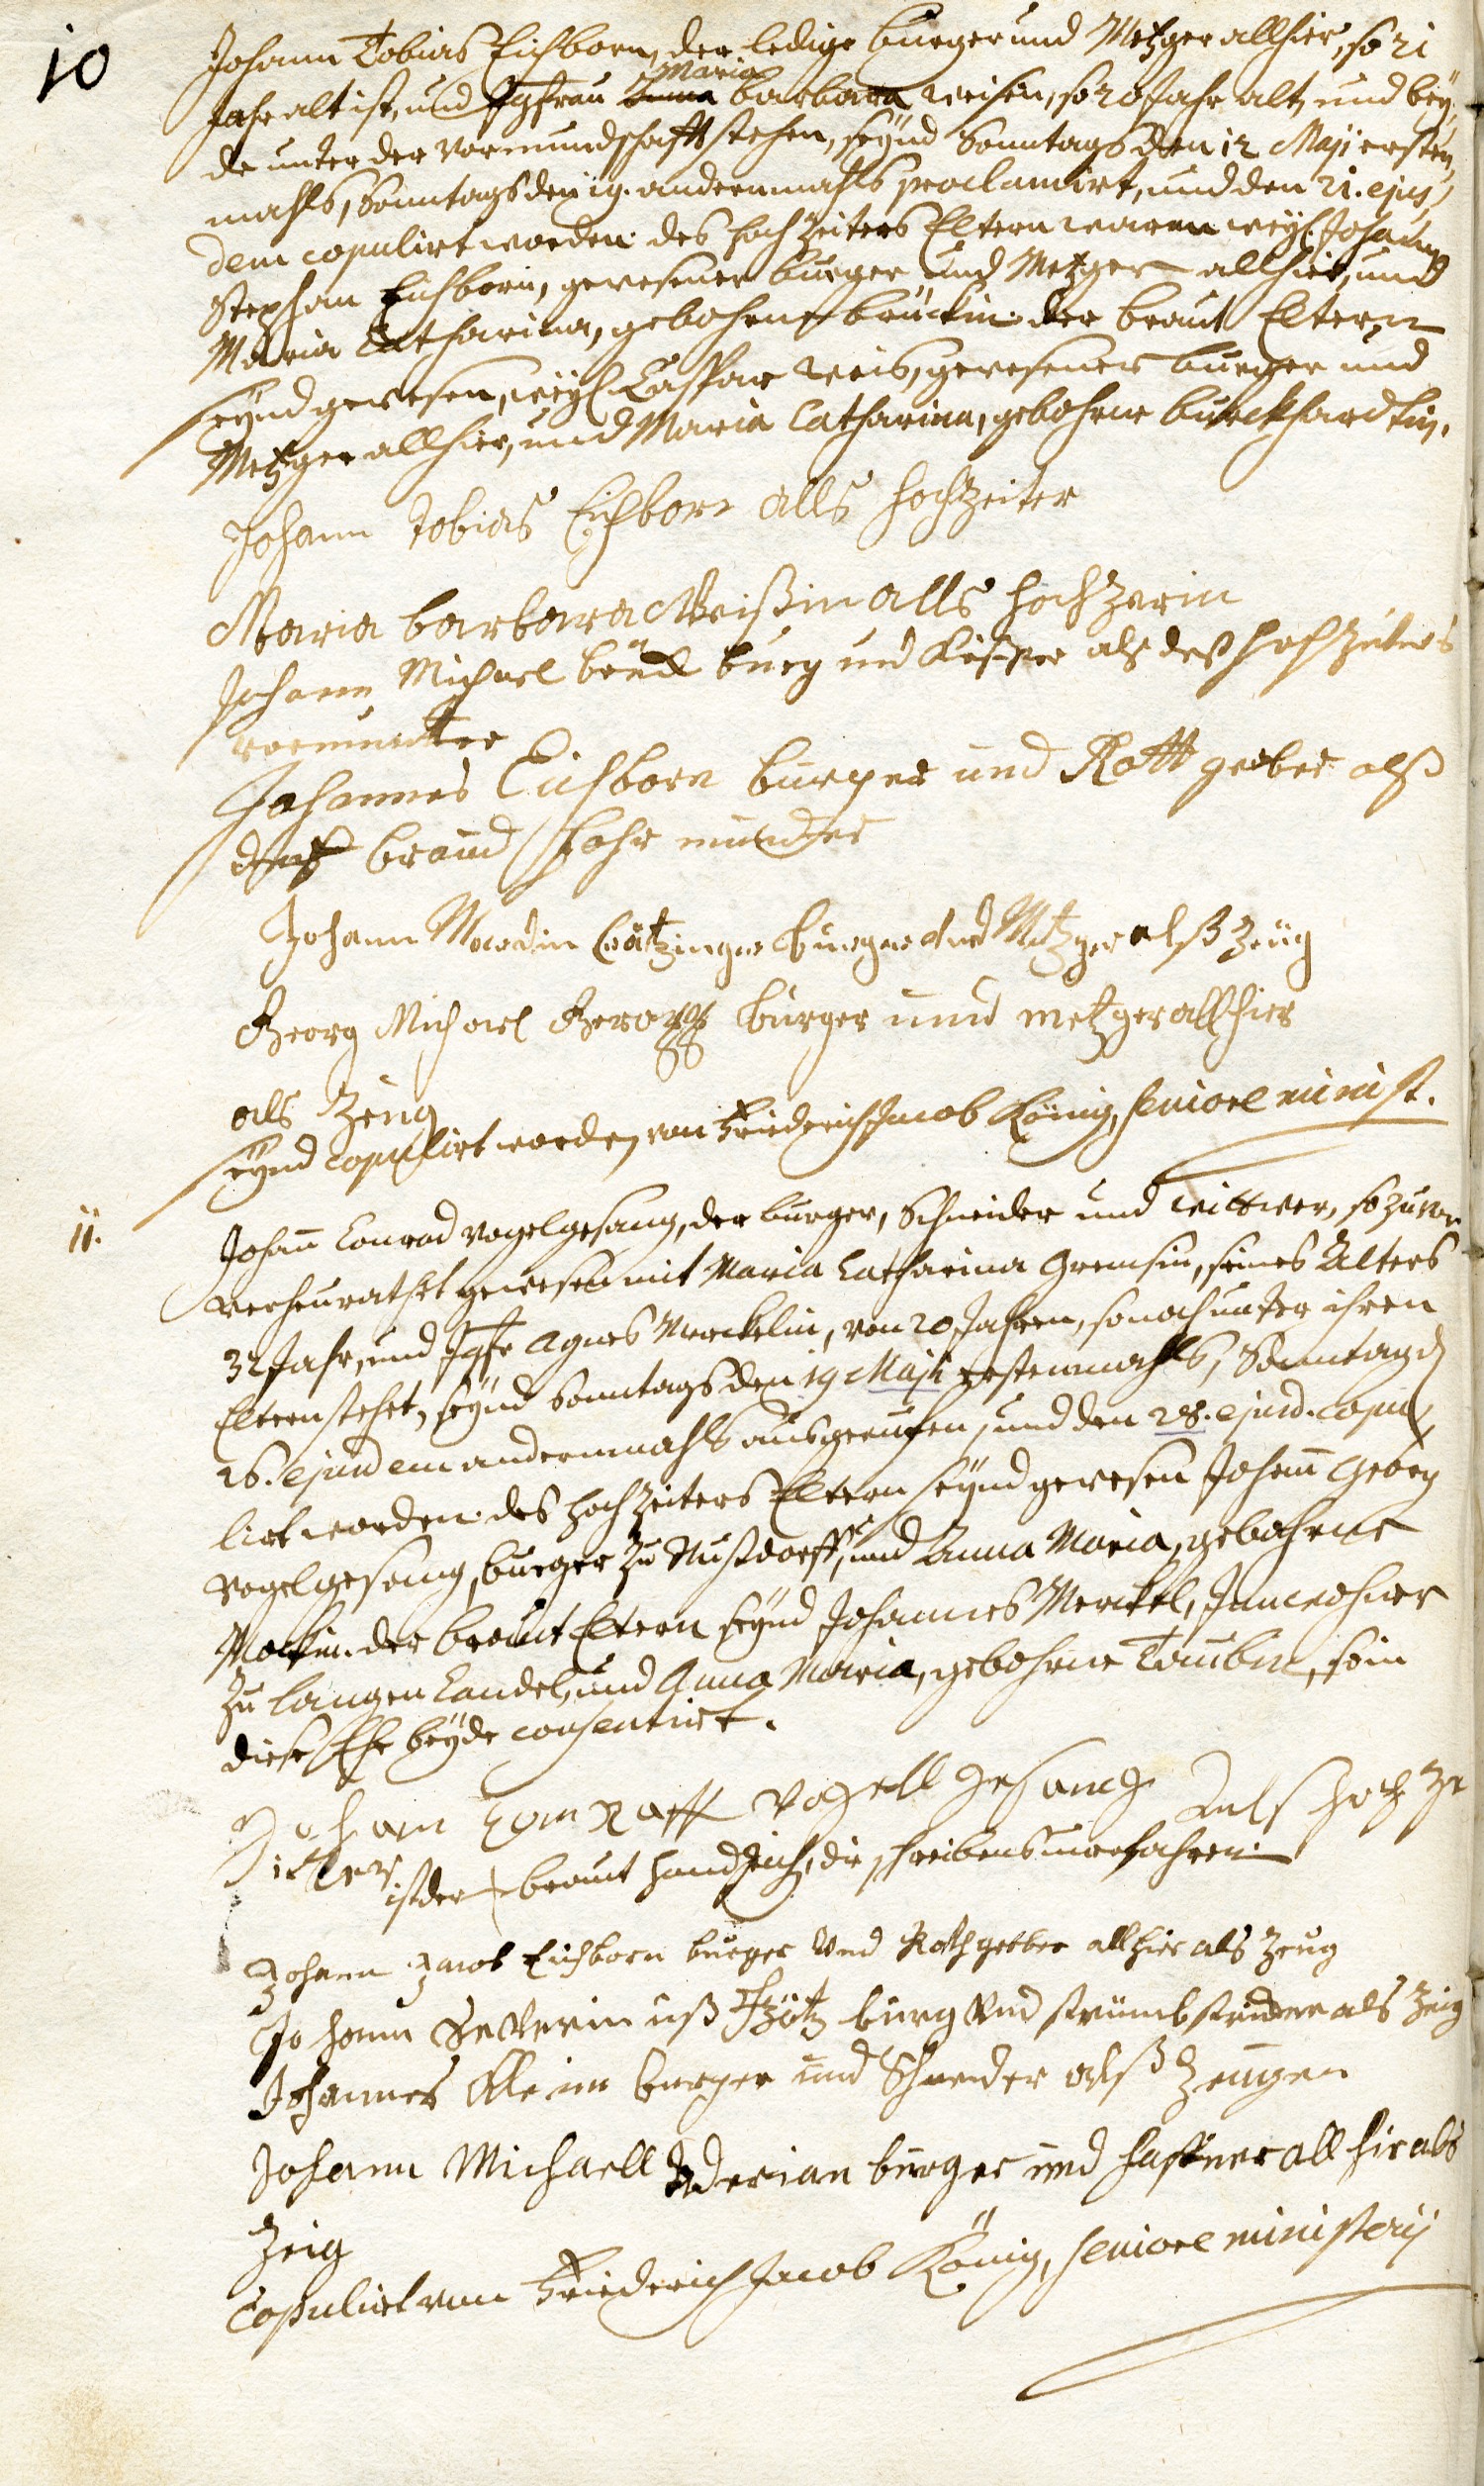 10
Johann Tobias Eichborn, der ledige burger und Metzger allhier, so 21
Jahr alt ist, und Jgfrau Maria
Anna barbara Weisin, so 20 Jahr alt, und bey¬
de unter der Vormundschafft stehen, seynd Sonntags den 12 Maji ersten¬
mahls, Sonntags den 19. andernmahls proclamirt, und den 21. ejus¬
dem copulirt worden. des hochzeiters Eltern waren weyl. Johann
Stephan Eichborn, gewesener burger und Metzger allhier, und
Maria Catharina, gebohrne brückin. der braut Eltern
seynd gewesen, weyl. Caspar Weis, gewesener burger und
Metzger allhier, und Maria Catharina, gebohrne burckhardtin.
Johann Tobias Eichborn alls hochzeiter
Maria barbara Weißin alls hochzerin
Johann Michael burg und Kieffer alß deß hochzeiters
vormunter
Johannes Eichborn burger und Rott gerber alß
braud fohr munder
Johann Mardin burger und Metzger alß zeüg
Georg Michael burger und metzger allhier
als Zeug
seynd copulirt worden von Friederich Jacob König, seniore minist.
11.
Johann Conrad Vogelgesang, der burger, Schneider und wittwer, so zuvor
verheurathet gewesen mit Maria Catharina Gremsin, seines Alters
32 Jahr, und Jgfr Agnes Merckelin, von 20 Jahren, so noch unter ihren
Eltern stehet, seynd Sonntags den 19 Maji erstenmahls, Sonntag d
26. ejusdem andernmahls ausgeruffen, und den 28. ejusd. copu¬
lirt worden. des hochzeiters Eltern seynd gewesen Johann Georg
Vogelgesang, burger zu Nußdorff, und Anna Maria, gebohrne
der braut Eltern seynd Johannes Merckel, Innwohner
zu langen Candel, und Anna Maria, gebohrne Taubin, so in
diese Ehe beyde consentirt.
Johann Conratt Vogellgesang Als hoch ze
itter
ist der braut handzeich, die schreibens unerfahren.
Johann Jacob Eichborn burger Und Rothgerber allhier als Zeug
Johann Severinuß Götz burg Und strumbstricker als Zeig
Johannes Klein burger und Schneider alß Zeugen
Johann Michaell Aderian burger und haffner all hir als
Zeig
Copulirt von Friederich Jacob König, seniore ministerij